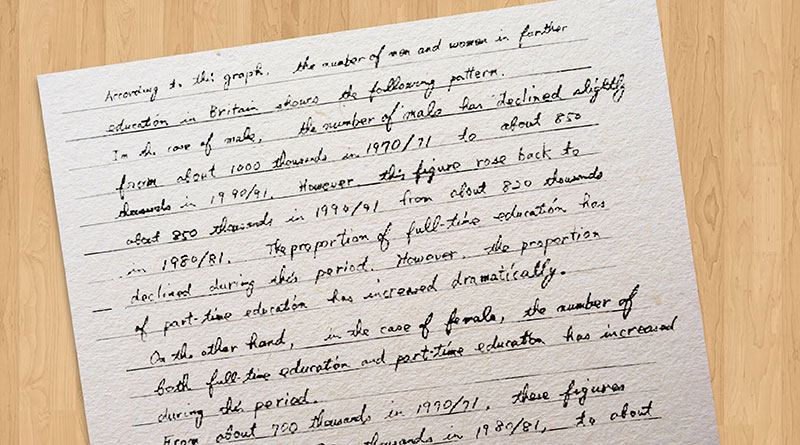 According to this graph, the number of men and women in further
education in Britain shows the following pattern.
In the case of male, the number of male has declined slightly
from about 1000 thousands in 1970/71 to about 850
thousands in 1990/91. However, this figure rose back to
about 850 thousands in 1990/91 from about 820 thousands
in 1980/81. The proportion of full-time education has
declined during this period. However, the proportion
of part-time education has increased dramatically.
On the other hand, in the case of female, the number of
both full-time education and part-time education has increased
during this period.
From about 700 thousands in 1990/71, these figures
thousands in 1980/81, to about